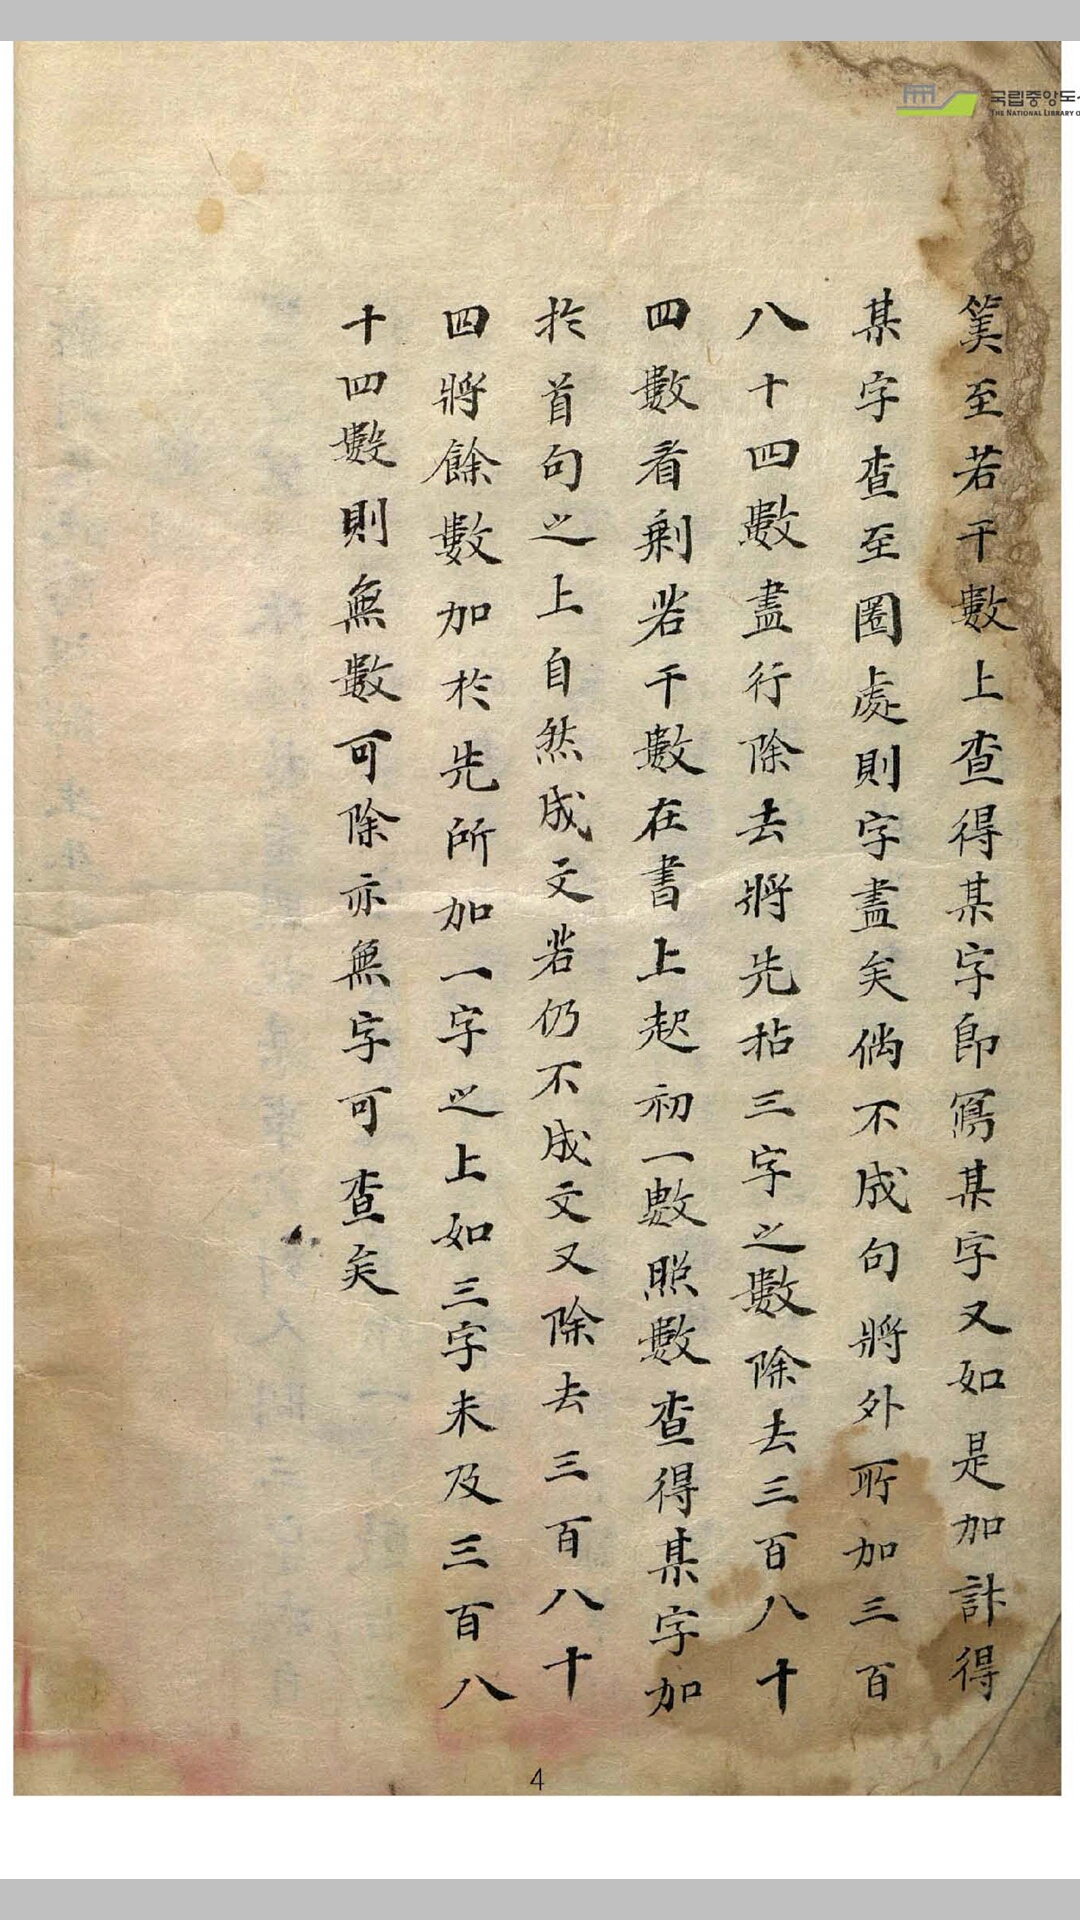 국립중앙도
THE NATIONAL LIBRARY O
筭至若干數上查得某字即寫某字又如是加計得
某字查至圈處則字盡矣倘不成句將外所加三百
八十四數盡行除去將先拈三字之數除去三百八十
四數看剩若干數在書上起初一數照數查得某字加
扵首句之上自然成文若仍不成文又除去三百八十
四將餘數加扵先所加一字之上如三字未及三百八
十四數則無數可除亦無字可查矣
4